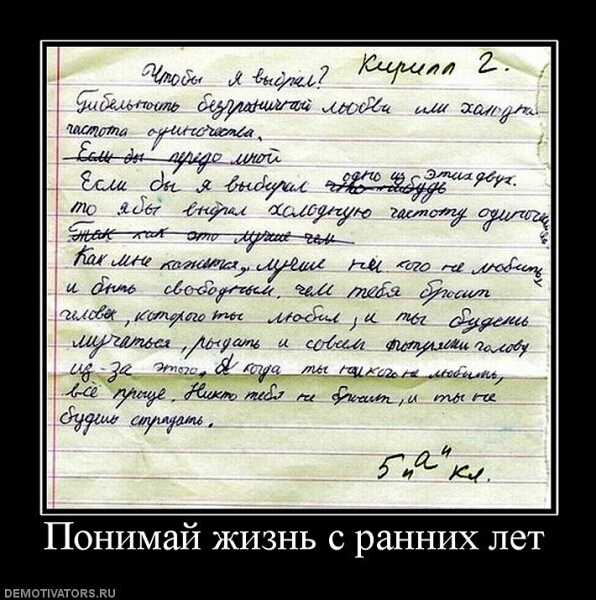 Кирилл Г.
Чтобы я выбрал?
Гибельность безграничной любви или холодная
частота одиночества.
Если бы передо мной
Если бы я выбирал что-нибудь одно из этих двух.
то ябы выбрал холодную частоту одиночества.
Так как это лучше чем
Как мне кажется, лучше ни кого не любить,
и быть свободным, чем тебя бросит
человек, которого ты любил, и ты будешь
мучаться, рыдать и совсем потеряешь голову
из-за этого. А когда ты ни кого не любишь,
всё проще. Никто тебя не бросит, и ты не
будешь страдать.
5 "а" кл.
Понимай жизнь с ранних лет
DEMOTIVATORS.RU